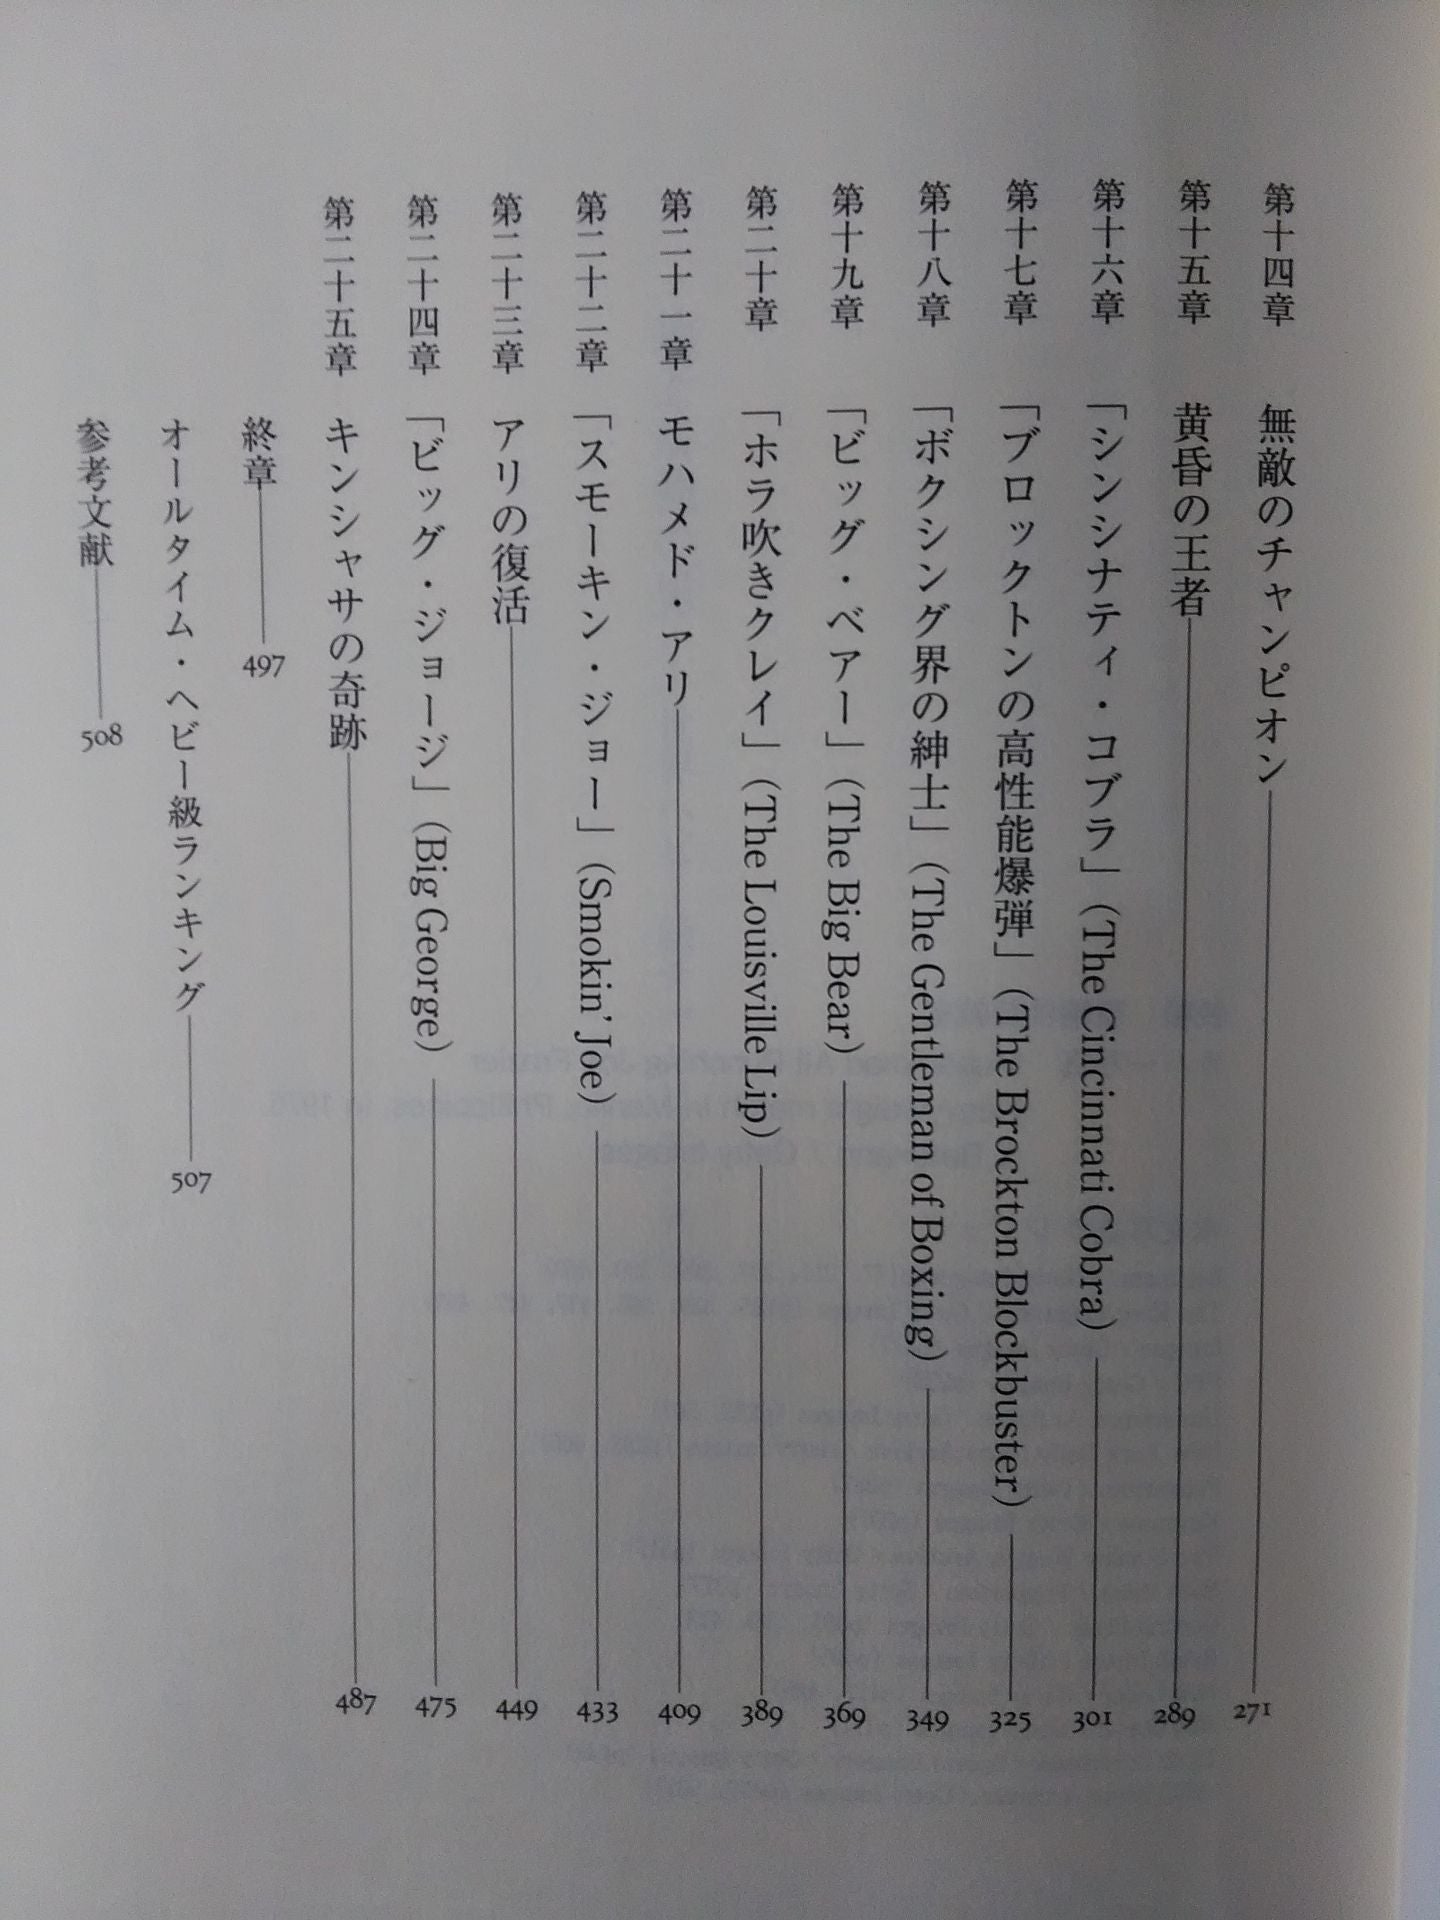 第十四章 無敵のチャンピオン 271
第十五章 黄昏の王者 289
第十六章 「シンシナティ・コブラ」(The Cincinnati Cobra) 301
第十七章 「ブロックトンの高性能爆弾」(The Brockton Blockbuster) 325
第十八章 「ボクシング界の紳士」(The Gentleman of Boxing) 349
第十九章 「ビッグ・ベアー」(The Big Bear) 369
第二十章 「ホラ吹きクレイ」(The Louisville Lip) 389
第二十一章 モハメド・アリ 409
第二十二章 「スモーキン・ジョー」(Smokin' Joe) 433
第二十三章 アリの復活 449
第二十四章 「ビッグ・ジョージ」(Big George) 475
第二十五章 キンシャサの奇跡 487
終章 497
オールタイム・ヘビー級ランキング 507
参考文献 508